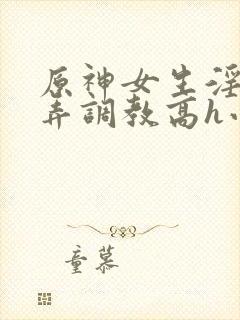 原神女生淫
弄調教高h小
童慕